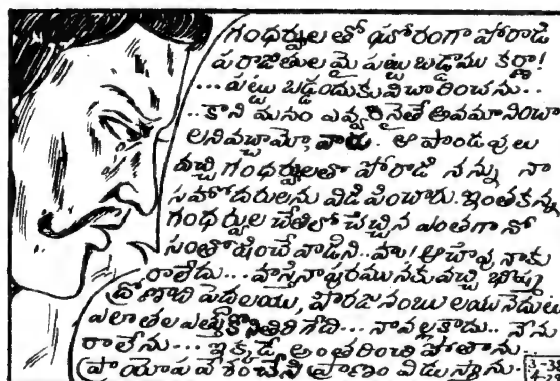 గంధర్వుల తో ఘోరంగా పోరాడి
పరాజితుల మై పట్టు బడ్డాము కర్ణా!
... పట్టు బడ్డందుకు విచారించను..
..కాని మనం ఎవ్వరినైతే అవమానించా
లనివచ్చామో వారు. ఆ పాండవులు
వచ్చి గంధర్వులతో పోరాడి నన్ను నా
సహోదరులను విడిపించారు. ఇంతకన్న
గంధర్వుల చేతిలో చచ్చిన ఎంతగానో
సంతోషించే వాడిని.. హా! ఆ చావు నాకు
రాలేదు... హస్తినాపురమునకు వచ్చి భీష్మ
ద్రోణాది పెదలయు, పౌరజనంబులయు నెదుట
ఎలా తల ఎత్తుకొని తిరిగేది... నావల్లకాదు.. నేను
రాలేను... ఇక్కడే అంతరించి పోతాను.
ప్రాయోపవేశం చేసి ప్రాణం విడుస్తాను.